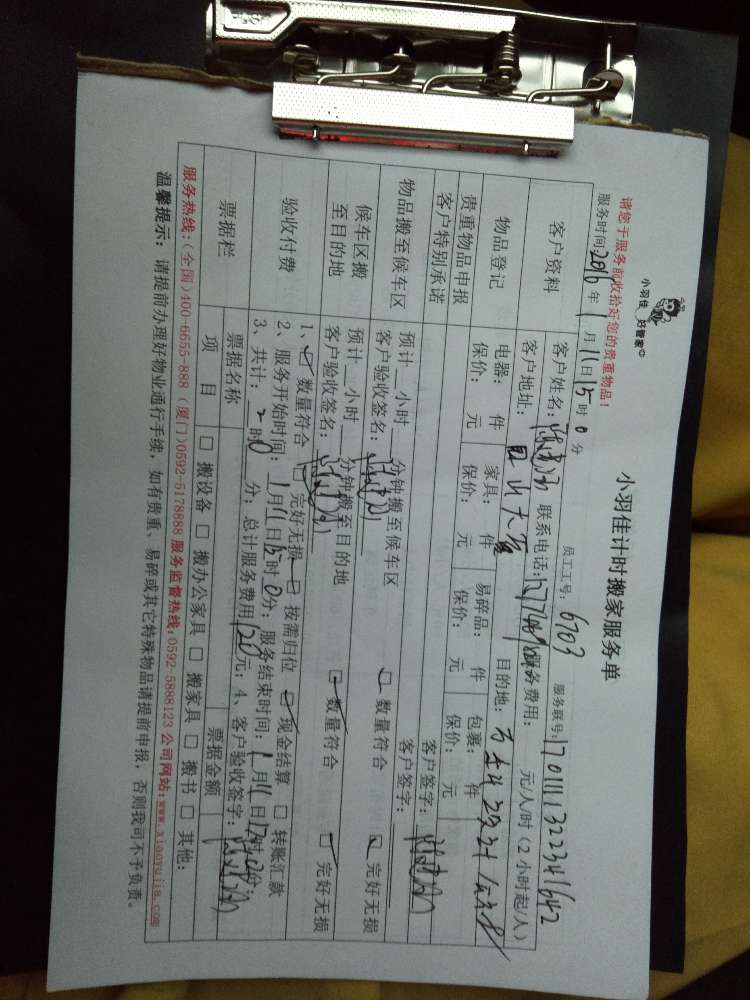 小羽佳 好管家
小羽佳计时搬家服务单
请您于服务前收拾好您的贵重物品！
员工工号：6703
服务联号：1701111322341642
服务时间：2016年1月11日15时0分
客户资料
客户姓名： 联系电话： 服务费用： 元/人/时（2小时起/人）
客户地址： 目的地：
物品登记
电器： 件 家具： 件 易碎品： 件 包裹： 件
保价： 元 保价： 元 保价： 元 保价： 元
贵重物品申报
客户签字：
客户特别承诺
客户签字：
物品搬至候车区
预计 小时 分钟搬至候车区
客户验收签名： 数量符合 完好无损
候车区搬至目的地
预计 小时 分钟搬至目的地
客户验收签名： 数量符合 完好无损
验收付费
1、数量符合 完好无损 按需归位 现金结算 □ 转账汇款
2、服务开始时间：1月11日15时0分；服务结束时间：1月11日17时0分；
3、共计：2时0分；总计服务费用120元；4、客户验收签字：
票据栏
票据名称 票据金额
项 目 □ 搬设备 □ 搬办公家具 □ 搬家具 □ 搬书 □ 其他：
服务热线：（全国）400-6655-888（厦门）0592-5178888 服务监督热线：0592-5888123 公司网站：www.xiaoyujia.com
温馨提示：请提前办理好物业通行手续，如有贵重、易碎或其它特殊物品请提前申报，否则我司不予负责。